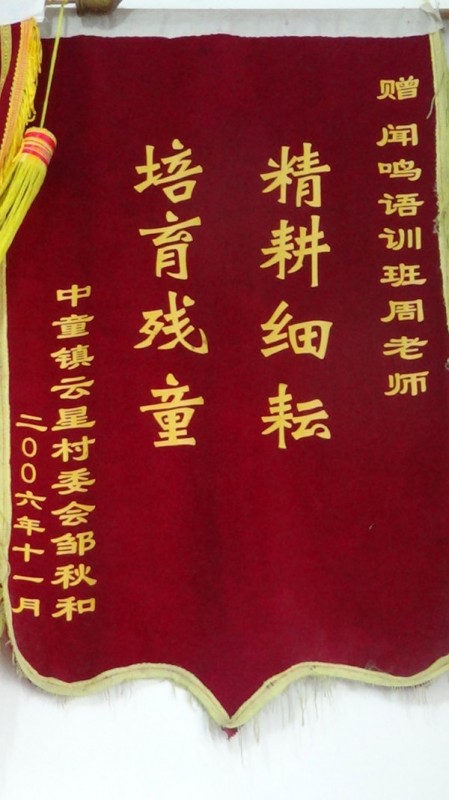 赠闻鸣语训班周老师
精耕细耘
培育残童
中童镇云星村委会邹秋和
二00六年十一月